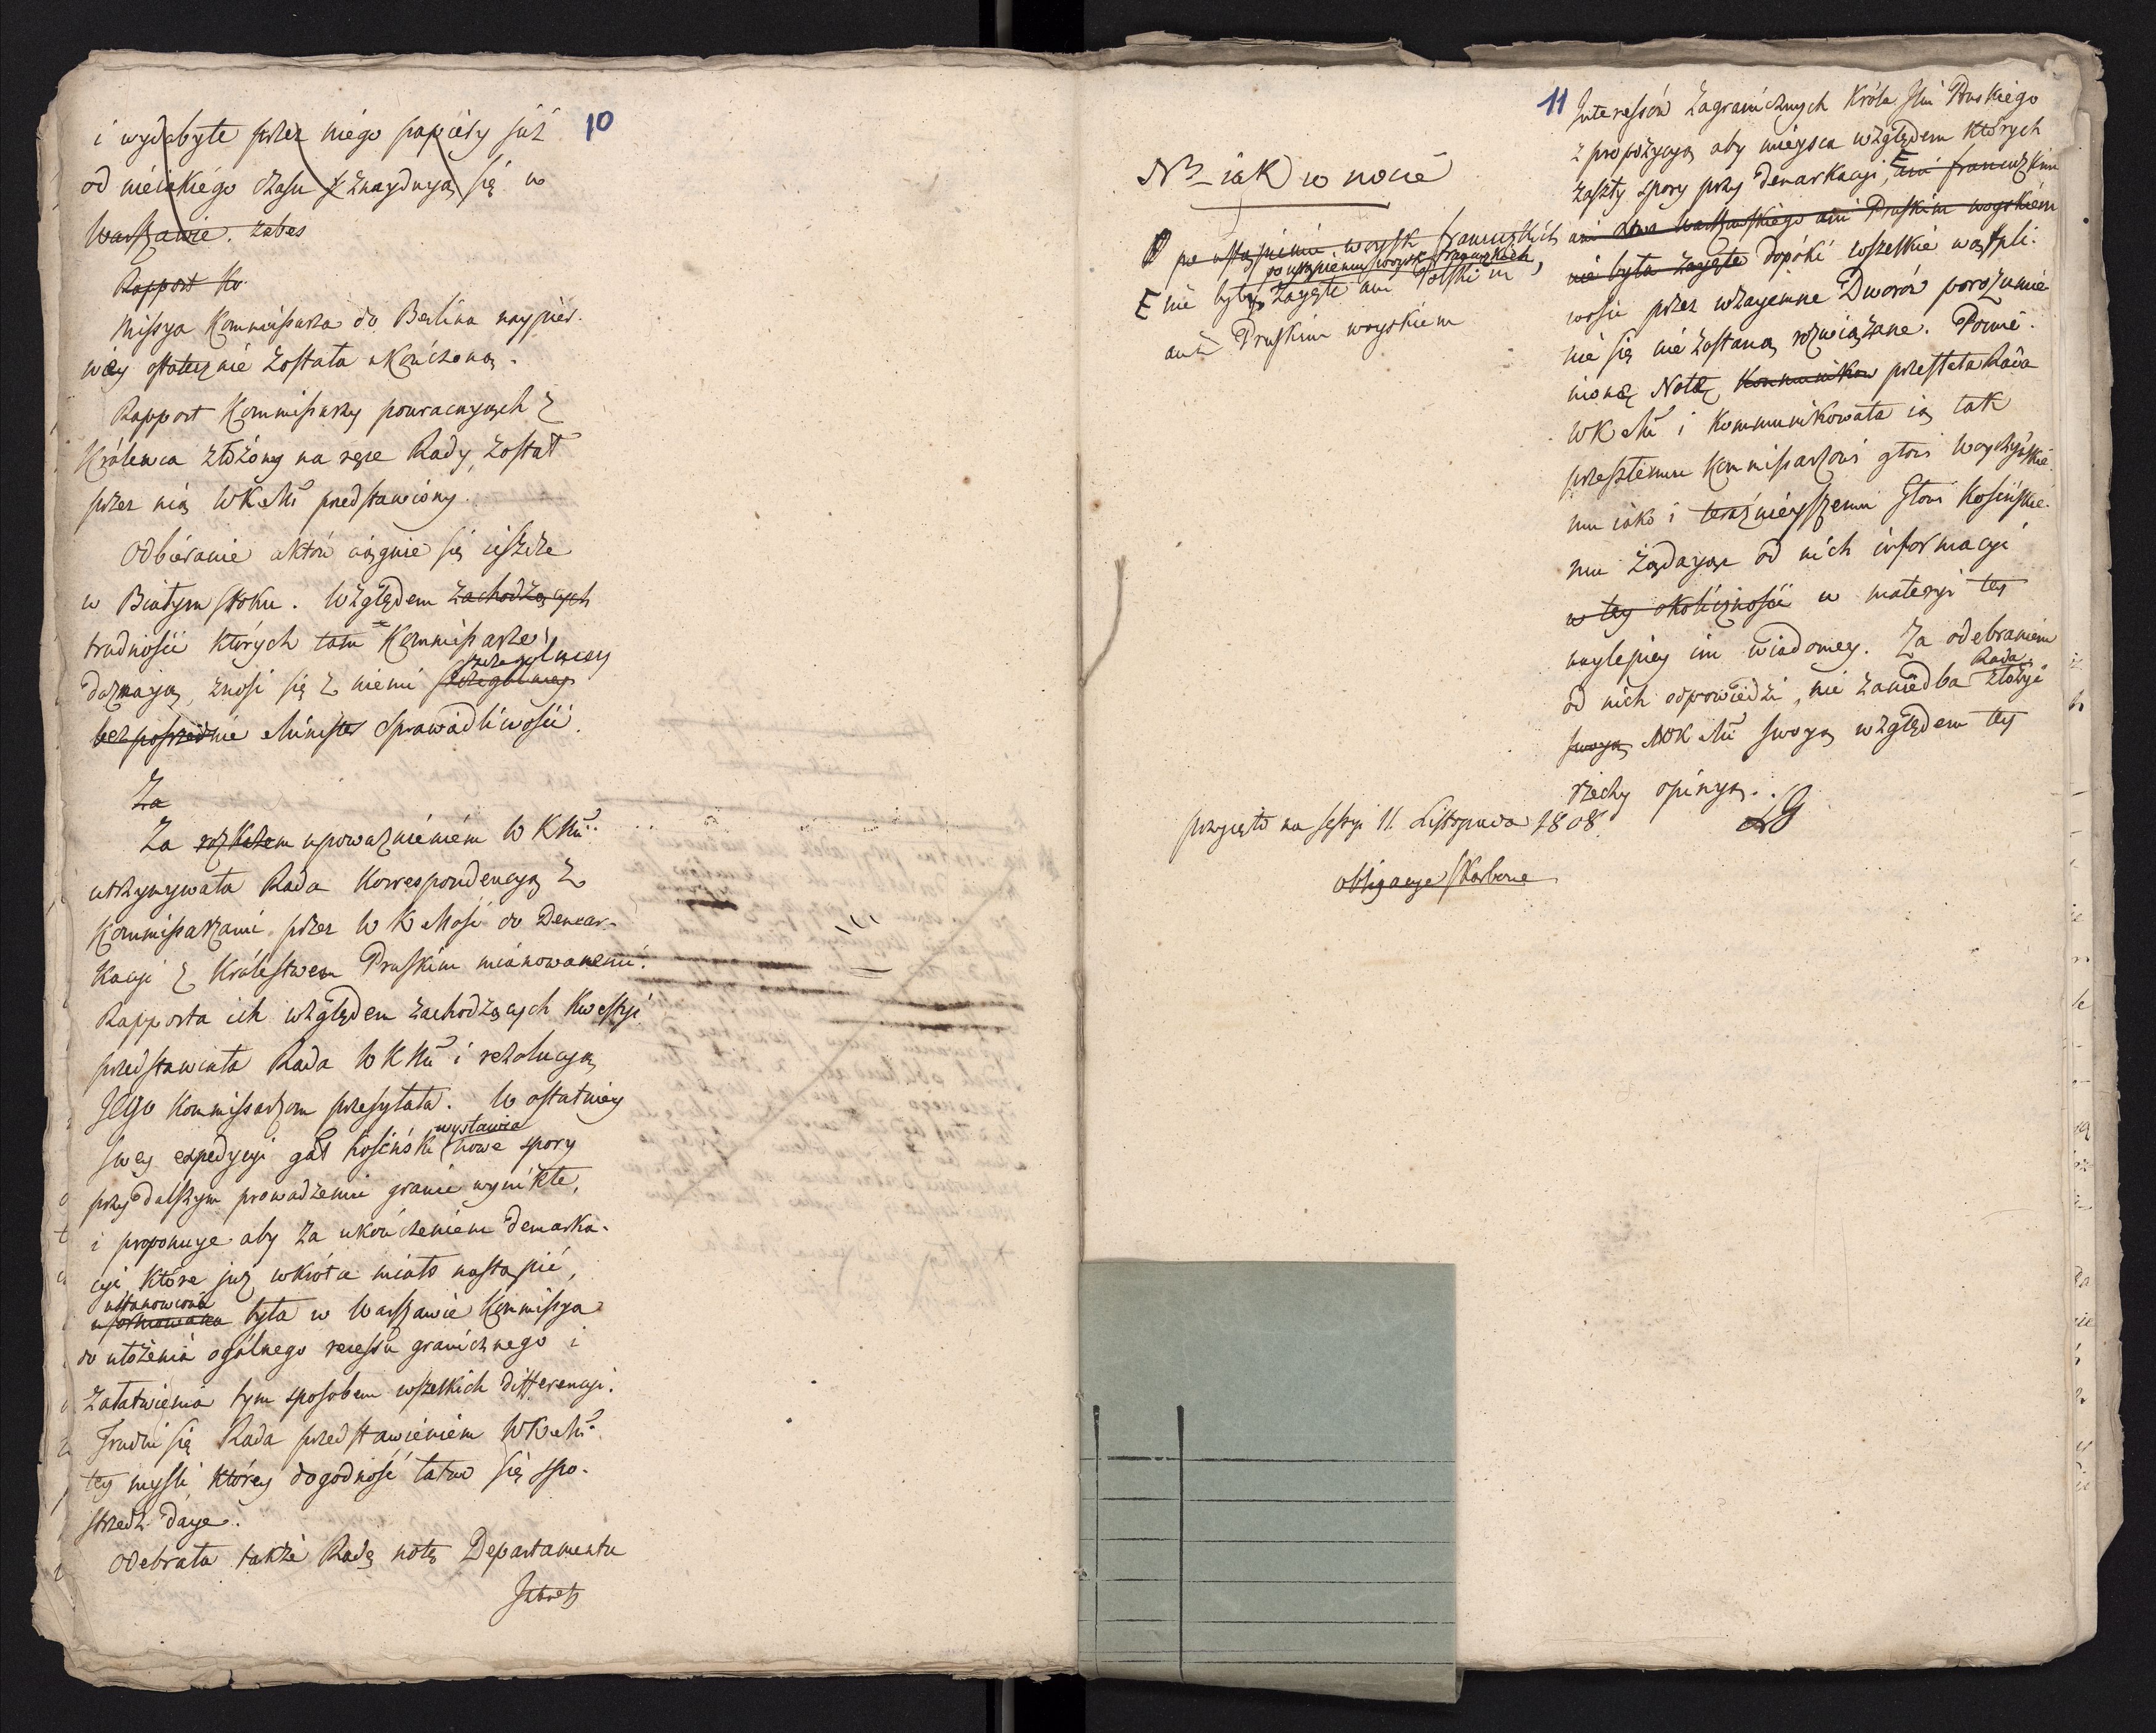 10
i wydobyte przez niego papiery już
od niéiakiego czasu znayduyą się w
Warszawie. zabes
Rapport Ko
Missya Kommissarza do Berlina naypier.
wéy ostatecznie została ukończoną.
Rapport Kommissarzy powracaiących z
Królewca złożony na ręce Rady, został
przez nią WKMci przedstawiony.
Odbiéranie aktów ciągnie się ieszcze
w Białymstoku. Względem zachodzących
trudności których tam Kommissarze
szczegulniey
doznaią, znosi się z niemi szczegulniey
bezpośrednie Minister Sprawiedliwości.
Za
Za rozkazem upoważnieniém WKMci
utrzymywała Rada Korrespondencyą z
Kommissarzami przez WKMość do Demar-
kacyi z Królestwem Pruskim mianowanemi.
Rapporta ich względem zachodzących kwestyi
przedstawiała Rada WKMci i rezolucyą
Jego Kommissarzom przesyłała. W ostatniey
wystawia
swey expedycyi gał Kosiński nowe spory
przy dalszym prowadzeniu granic wynikłe,
i proponuye aby za ukończeniem demarka-
cyi, które już wkrótce miało nastąpić,
ustanowioną
uformowana była w Warszawie Kommissya
do ułożenia ogólnego recessu granicznego i
załatwienia tym sposobem wszelkich differencyi.
Trudni się Rada przedstawieniem WKMci
tey myśli, którey dogodność łatwo się spo-
strzedz daye.
Odebrała także Rada notę Departamentu
11
N3 iak w nocie
po ustąpieniu woysk francuzkich
po ustąpieniu woysk francuzkich,
E nie były zayęte ani Polskim
ani Pruskim woyskiem
Interessów Zagranicznych Króla Jmci Pruskiego
z propozycyą aby mieysca względem których
zaszły spory przy demarkacyi, E ani francuzkim
ani Xtwa Warszawskiego ani Pruskim woyskiem
nie były zayęte dopóki wszelkie wątpli-
wości przez wzayemne Dworów porozumie
nie się nie zostaną rozwiązane. Pomie-
nioną Notę Kommunikow przesłała Rada
WKMci i kommunikowała ią tak
przeszłemu Kommissarzowi głowi Woyczyńskie
mu iako i teraźnieyszemu głowi Kosińskie-
mu żądayąc od nich informacyi
w tey okoliczności w materyi tey
naylepiey im wiadomey. Za odebraniem
Rada
od nich odpowiedzi, nie zaniedba złożyć
swoyą WKMci swoyą względem tey
rzeczy opinyą.
przyięto na sessyi 11. Listopada 1808.
obligacye Skarbowe